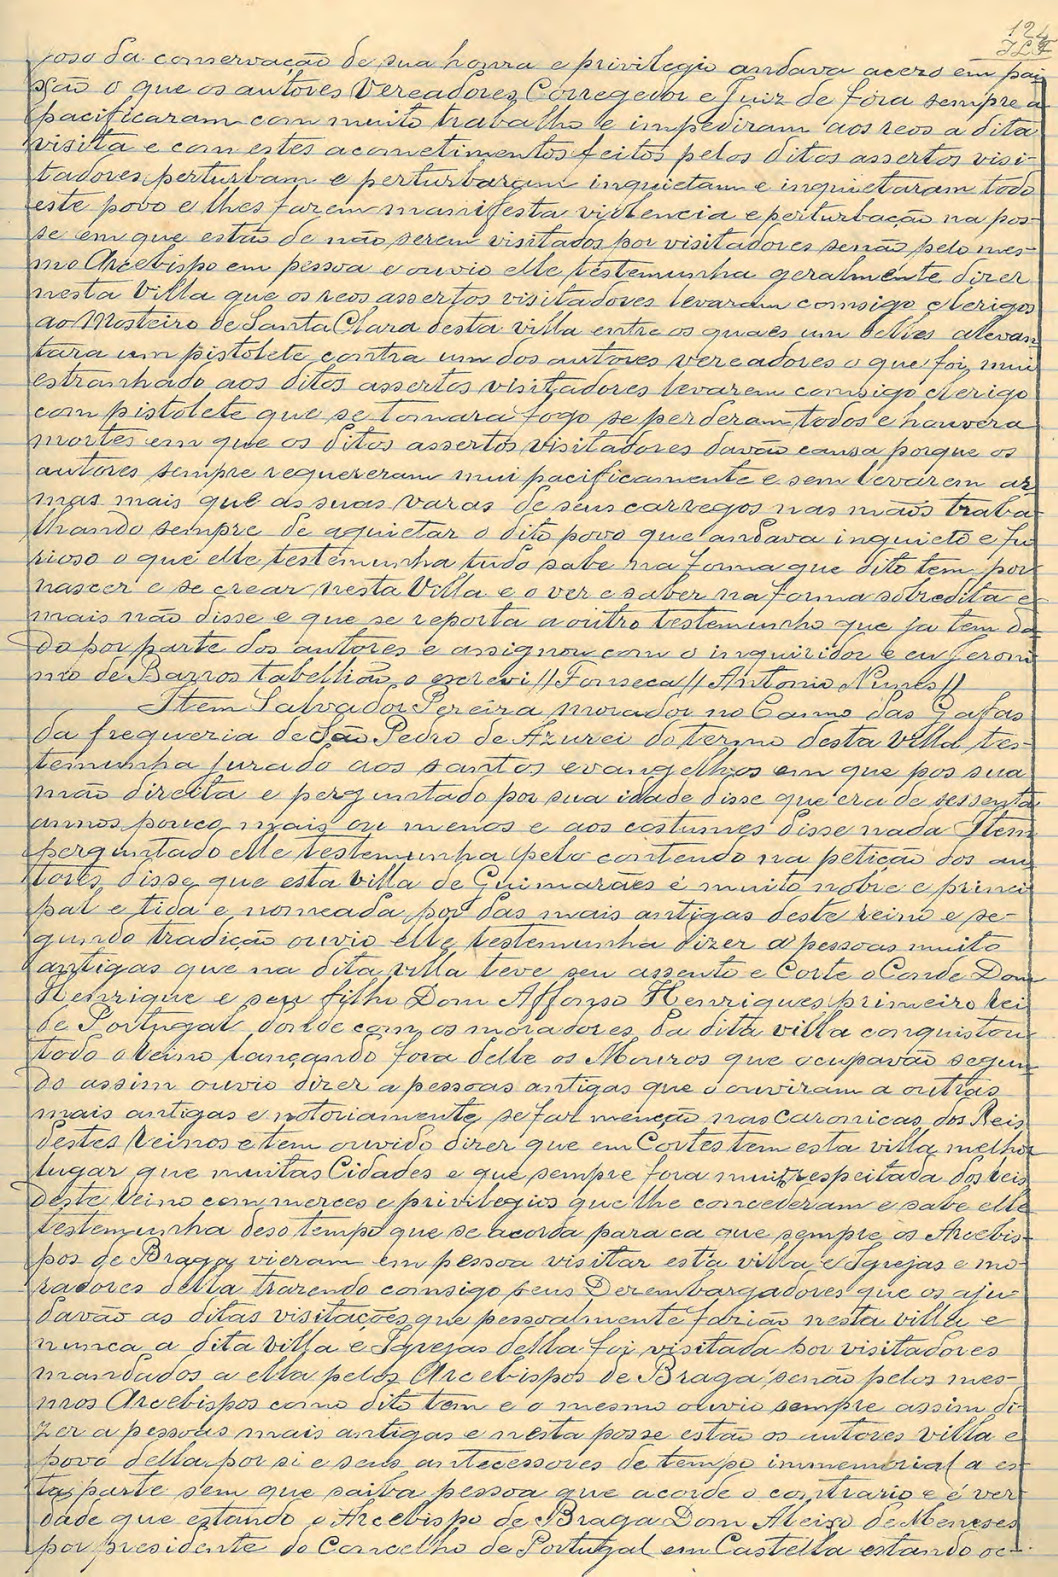 124
joso da conservação de sua honra e privilegio andava aceso em pai
xão o que os autores Vereadores Corregedor e Juiz de fora sempre a
pacificaram com muito trabalho e impediram aos reos a dita
visita e com estes acometimentos feitos pelos ditos assertos visi-
tadores perturbam e perturbaram inquietam e inquietaram todo
este povo e lhes fazem manifesta violencia e perturbação na pos-
se em que estão de não serem visitados por visitadores senão pelo mes-
mo Arcebispo em pessoa e ouvio elle testemunha geralmente dizer
nesta Villa que os reos assertos visitadores levaram comsigo clerigos
ao Mosteiro de Santa Clara desta villa entre os quaes um delles alevan
tara um pistolete contra um dos autores vereadores o que foi mui
estranhado aos ditos assertos visitadores levarem comsigo clerigo
com pistolete que se tomara fogo se perderam todos e houvera
mortes em que os ditos assertos visitadores davão causa porque os
autores sempre requereram mui pacificamente e sem levarem ar
mas mais que as suas varas de seus carregos nas mãos traba-
lhando sempre de aquietar o dito povo que andava inquieto e fu
rioso o que elle testemunha tudo sabe na forma que dito tem por
nascer e se crear nesta Villa e o ver e saber na forma sobredita e
mais não disse e que se reporta a outro testemunho que ja tem da
do por parte dos autores e assignou com o inquiridor e eu Jeroni
mo de Barros tabellião o escrevi // Fonseca // Antonio Nunes //
Item Salvador Pereira morador no Casino das Gafas
da freguezia de São Pedro de Azurei do termo desta villa tes-
temunha jurado aos santos evangelhos em que pos sua
mão direita e perguntado por sua idade disse que era de sessenta
annos pouco mais ou menos e aos costumes disse nada Item
perguntado elle testemunha pelo contendo na petição dos au
tores disse que esta villa de Guimarães é muito nobre e princi
pal e tida e nomeada por das mais antigas deste reino e se-
gundo tradição ouvio elle testemunha dizer a pessoas muito
antigas que na dita villa teve seu assento e Corte o Conde Dom
Henrique e seu filho Dom Affonso Henriques primeiro rei
de Portugal donde com os moradores da dita villa conquistou
todo o reino lançando fora delle os Mouros que ocupavão segun
do assim ouvio dizer a pessoas antigas que o ouviram a outras
mais antigas e notoriamente se faz menção nas caronicas dos Reis
destes reinos e tem ouvido dizer que em Cortes tem esta villa melhor
lugar que muitas Cidades e que sempre fora mui respeitada dos reis
deste reino com merces e privilegios que lhe concederam e sabe elle
testemunha deso tempo que se acorda para ca que sempre os Arcebis-
pos de Braga vieram em pessoa visitar esta villa e Igrejas e mo-
radores della trazendo comsigo seus Dezembargadores que os aju-
davão as ditas visitações que pessoalmente farião nesta villa e
nunca a dita villa e Igrejas della foi visitada por visitadores
mandados a ella pelos Arcebispos de Braga senão pelos mes-
mos Arcebispos como dito tem e o mesmo ouvio sempre assim di-
zer a pessoas mais antigas e nesta posse estão os autores villa e
povo della por si e seus antecessores de tempo immemorial a es-
ta parte sem que saiba pessoa que acorde o contrario e é ver
dade que estando o Arcebispo de Braga Dom Aleixo de Meneses
por presidente do Concelho de Portugal em Castella estando oc-